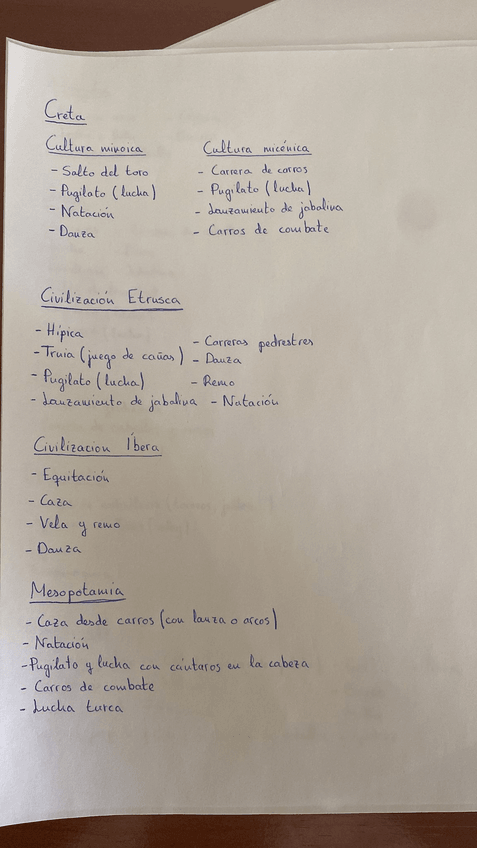 Creta
Cultura minoica
- Salto del toro
- Pugilato (lucha)
- Natación
- Danza
Cultura micénica
- Carrera de carros
- Pugilato (lucha)
- Lanzamiento de jabalina
- Carros de combate
Civilización Etrusca
- Hípica
- Truia (juego de cañas)
- Pugilato (lucha)
- Lanzamiento de jabalina
- Carreras pedrestres
- Danza
- Remo
- Natación
Civilizacion Íbera
- Equitación
- Caza
- Vela y remo
- Danza
Mesopotamia
- Caza desde carros (con lanza o arcos)
- Natación
- Pugilato y lucha con cántaros en la cabeza
- Carros de combate
- Lucha turca